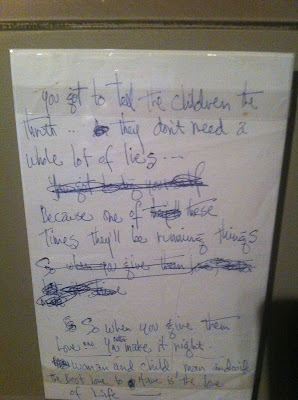 you got to tell the children the
truth .. they don't need a
whole lot of lies ---
Because one of these
times they'll be running things
So when you give them
So when you give them
Love you make it right.
woman and child, man and child
the best love to have is the love
of life